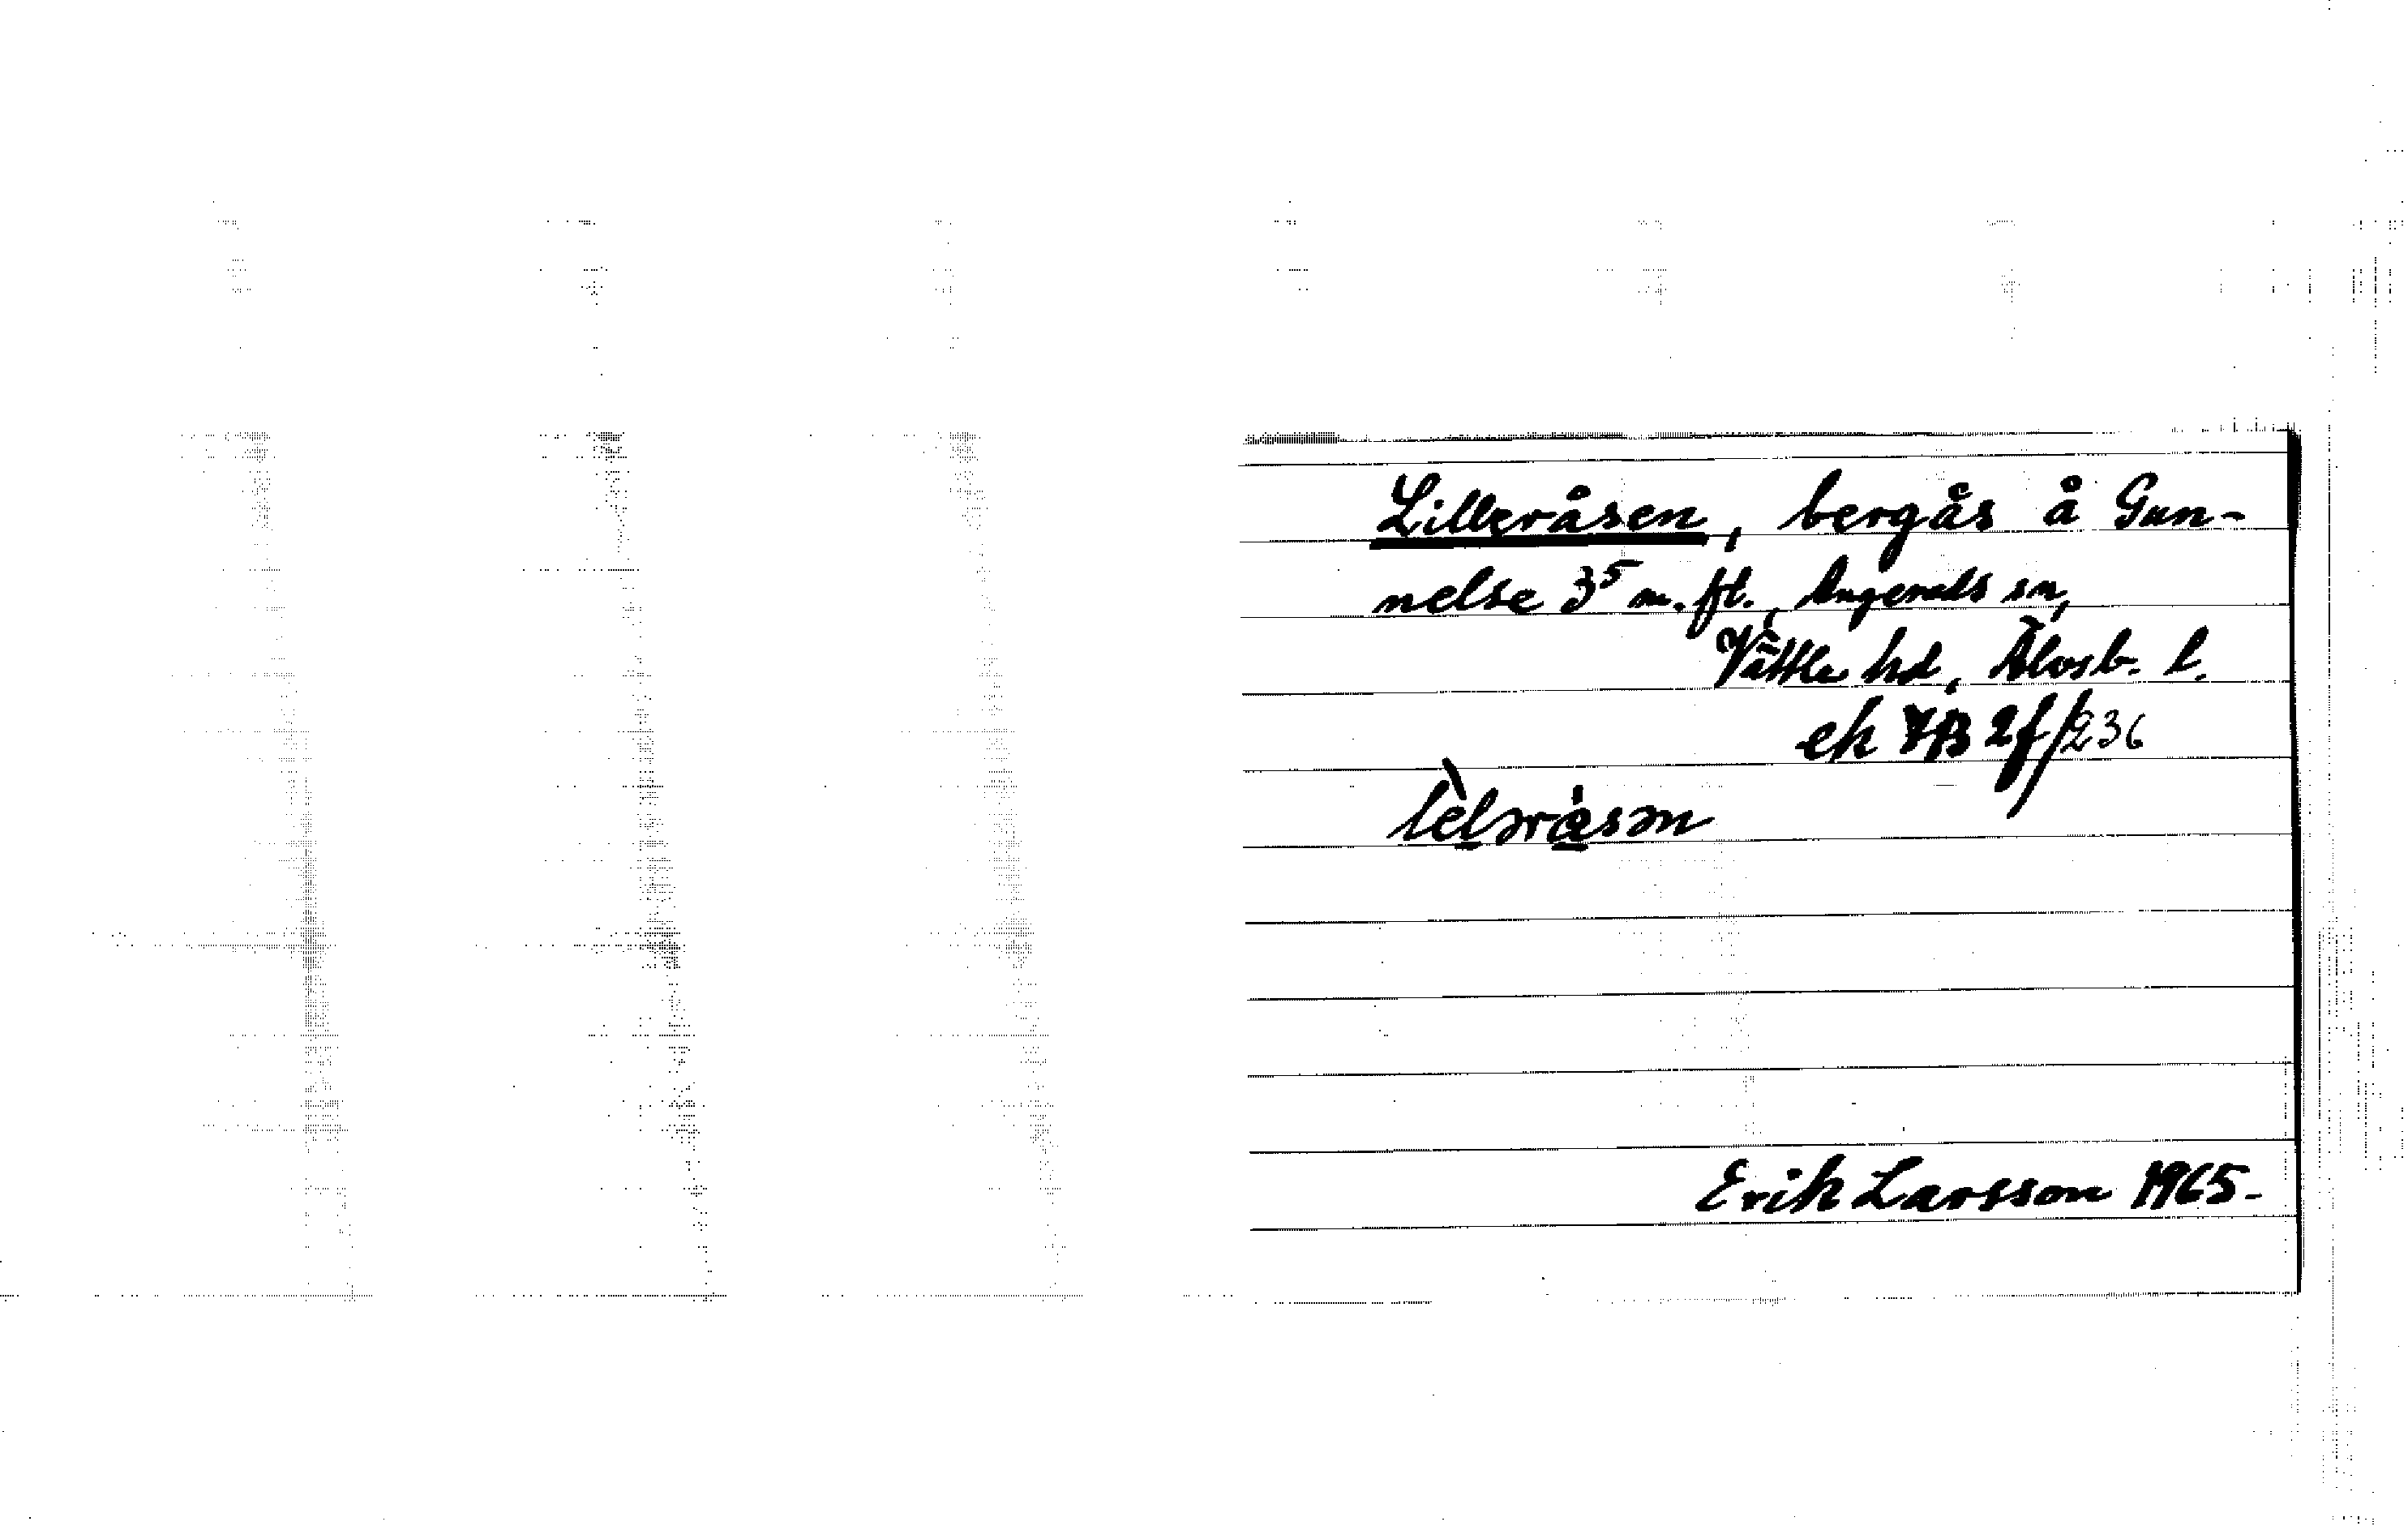 Lilleråsen, bergås å Gun-
nelse 3⁵ m. fl., Angereds sn,
Vättle hd, Älvsb. l.
ek 7B 2f/236
lèləråsən
Erik Larsson 1965.